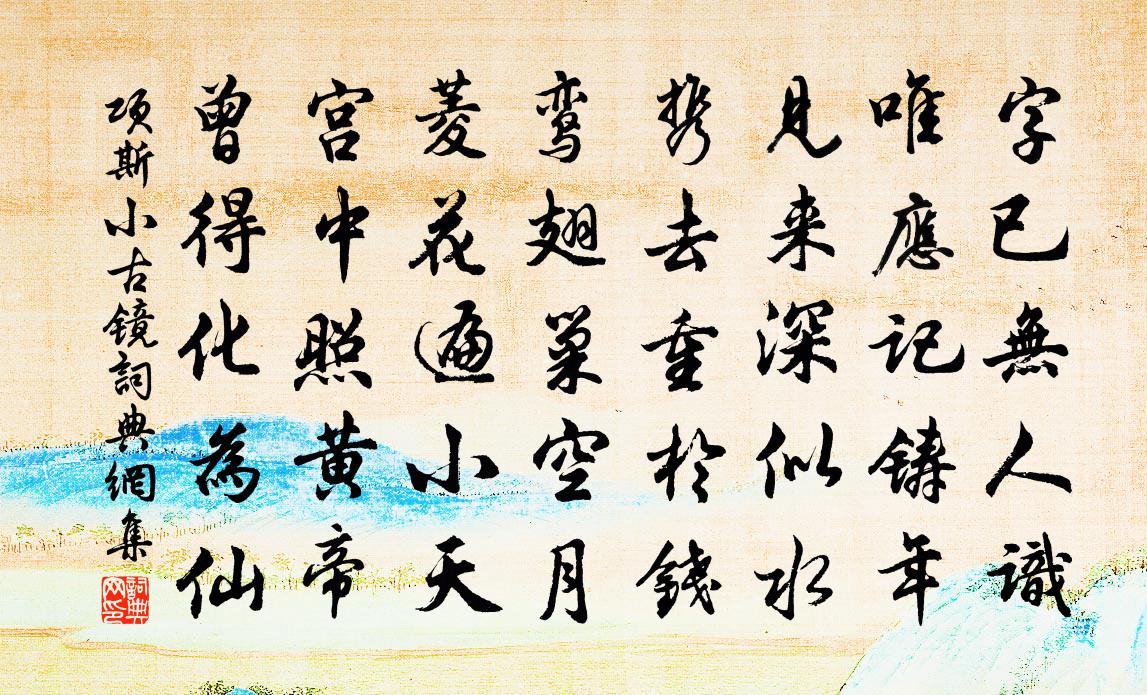 字已無人識
唯應記鑄年
見来深似水
携去重於錢
鸾翅巢空月
菱花遍小天
宮中照黄帝
曾得化為仙
项斯小古鏡詞典網集